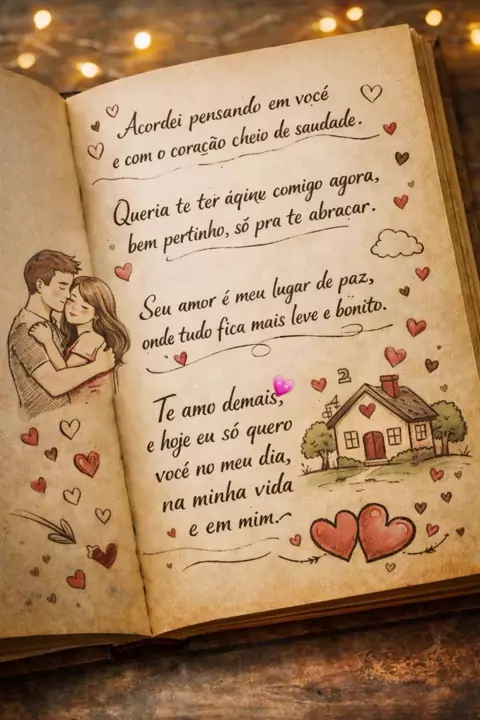 Acordei pensando em você
e com o coração cheio de saudade.
Queria te ter áqine comigo agora,
bem pertinho, só pra te abraçar.
Seu amor é meu lugar de paz,
onde tudo fica mais leve e bonito.
Te amo demais,
e hoje eu só quero
você no meu dia,
na minha vida
e em mim.
2